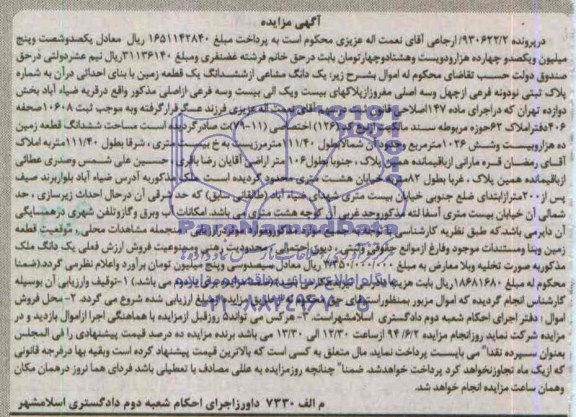 آگهی مزایده
درپرونده ۹۳۰۶۲۲/۲/ارجاعی آقای نعمت اله عزیزی محکوم است به پرداخت مبلغ ۱۶۵۱۱۴۲۸۴۰ ریال معادل یکصدوشصت وپنج
میلیون ویکصدو چهارده هزارودویست وهشتادوچهارتومان بابت درحق خانم فرشته غضنفری ومبلغ ۳۱۱۳۶۱۴۰ریال نیم عشردولتی درحق
صندوق دولت حسب تقاضای محکوم له اموال بشرح زیر: یک دانگ مشاعی ازششدانگ یک قطعه زمین با بنای احداثی درآن به شماره
پلاک ثبتی نودونه فرعی از چهل وسه اصلی مفروزازپلاکهای بیست ویک الی بیست وسه فرعی ازاصلی مذکور واقع درقریه ضیاء آباد بخش
دوازده تهران که دراجرای ماده ۱۴۷اصلاحی قانون ثبت آقای نعمت اله عزیزی فرزند عسگرقرارگرفته وبه موجب ثبت ۱۰۶۰۸صفحه
۴۰۶دفتراملاک ۶۲حوزه مربوطه سند مالکیت (۱۲۶) اختصاصی (۱۱-۷۹)ت صادرگردیده است مساحت ششدانگ قطعه زمین
ده هزاروبیست وشش ۱۰۲۶مترمربع شمالا بطول ۱۱۱/۴۰مترمرزیست به خ بیست متری ، شرقا بطول ۱۱۱/۴۰متربه املاک
آقای رمضان قره مارانی ازباقیمانده همین پلاک ، جنوبا بطول۱۰۶ متر اراضی آقایان رضا باقری ، حسین علی شمس وصدری عطائی
ازباقیمانده همین پلاک ، غربا بطول ۸۲ خیابان هشت متری محدود گردیده است ملک مذکوربه آدرس ضیاء آباد بلواربرند صیف
پس از۲۰۰مترازابتدای ضلع جنوبی خیابان بیست متری شهدای ضیاء آباد (طالقانی سابق) که حد شرقی آن درحال احداث زیرسازی ، حد
شمالی آن خیابان بیست متری آسفالته مذکوروحد غربی آن کوچه هشت متری می باشد امکانات آب وبرق وگازوتلفن شهری درهمسایگی
آن دایرمی باشدکه طبق نظریه کارشناس ازجمله مشاهدات محلی ، موقعیت قطعه
زمین وبنا ومستندات موجود وفارغ ازموانع حقوقی وثبتی ، دیون احتمالی ، محدودیت رهنی وممنوعیت فروش ارزش فعلی یک دانگ ملک
مذکوربه صورت تخلیه وبلا معارض به مبلغ ریال معادل سیصدوسی وپنج میلیون تومان برآورد واعلام نظرمی گردد(ضمنا
محکوم له مبلغ ۱۸۶۸۱۶۸۰ ریال بابت هزینه می باشد) ۱-توقیف وارزیابی آن بوسیله
کارشناس انجام گردیده که اموال مزبور بمنظوراستیفای حق محکوم له ازطریق مزایده ازمبلغ ارزیابی شده شروع می گردد ۲- محل فروش
اموال : دفتر اجرای احکام شعبه دوم دادگستری اسلامشهراست ۳-هرکس می تواند۵ روزقبل ازمزایده با هماهنگی اجرا ازاموال بازدید و در
مزایده شرکت نماید روزانجام مزایده ۹۴/۶/۲ ازساعت ۱۲/۳۰ الی ۱۳/۳۰ می باشد برنده مزایده ده درصد قیمت پیشنهادی را فی المجلس
بعنوان سپرده نقدا" می بایست پرداخت نماید. مال متعلق به کسی است که بالاترین قیمت پیشنهاد کرده است وبقیه بها درفرجه قانونی
که ازیک ماه تجاوزنخواهد کرد پرداخت خواهدشد. ضمنا" چنانچه روزمزایده به عللی مصادف با تعطیلی باشد فردای هما نروز درهمان مکان
وهمان ساعت مزایده انجام خواهد شد.
م الف ۷۳۳۰ داورزاجرای احکام شعبه دوم دادگستری اسلامشهر
ParsNamadData
۰۲۱-۸۸۳۴۹۶۷۰